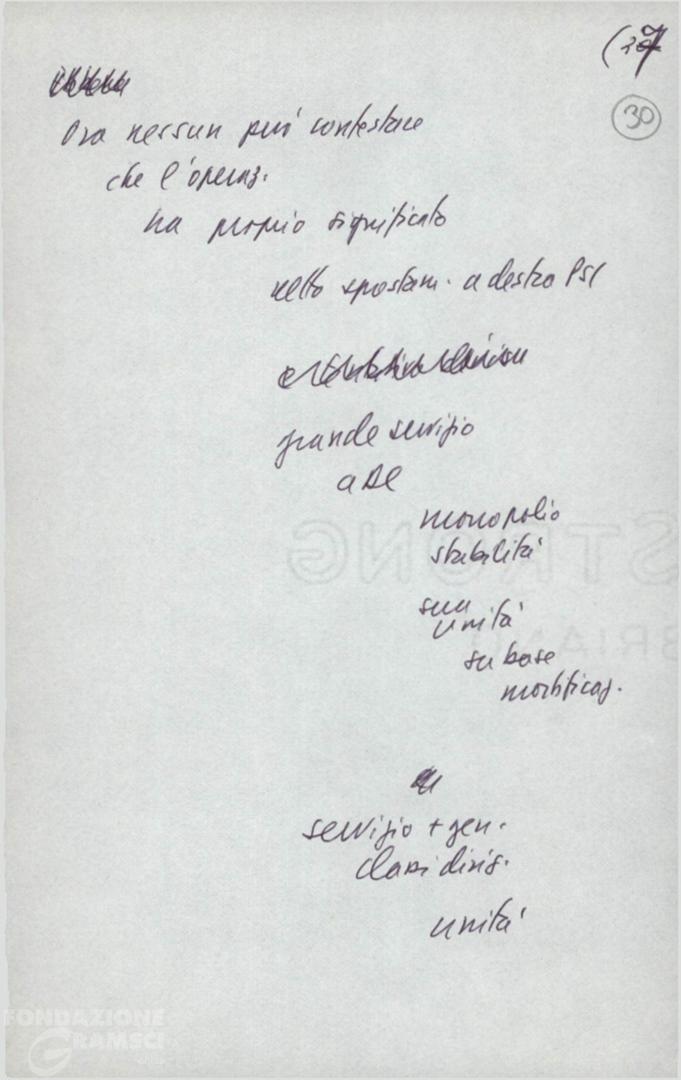 7
30
Ora nessun può contestare
che l'operaz.
ha proprio significato
netto spostam. a destra PSI
grande servizio
a DC
monopolio
stabilità
sua
unità
su base
mortificaz.
servizio + gen.
classi dirig.
unità
STRONG
BRIANO
FONDAZIONE
GRAMSCI